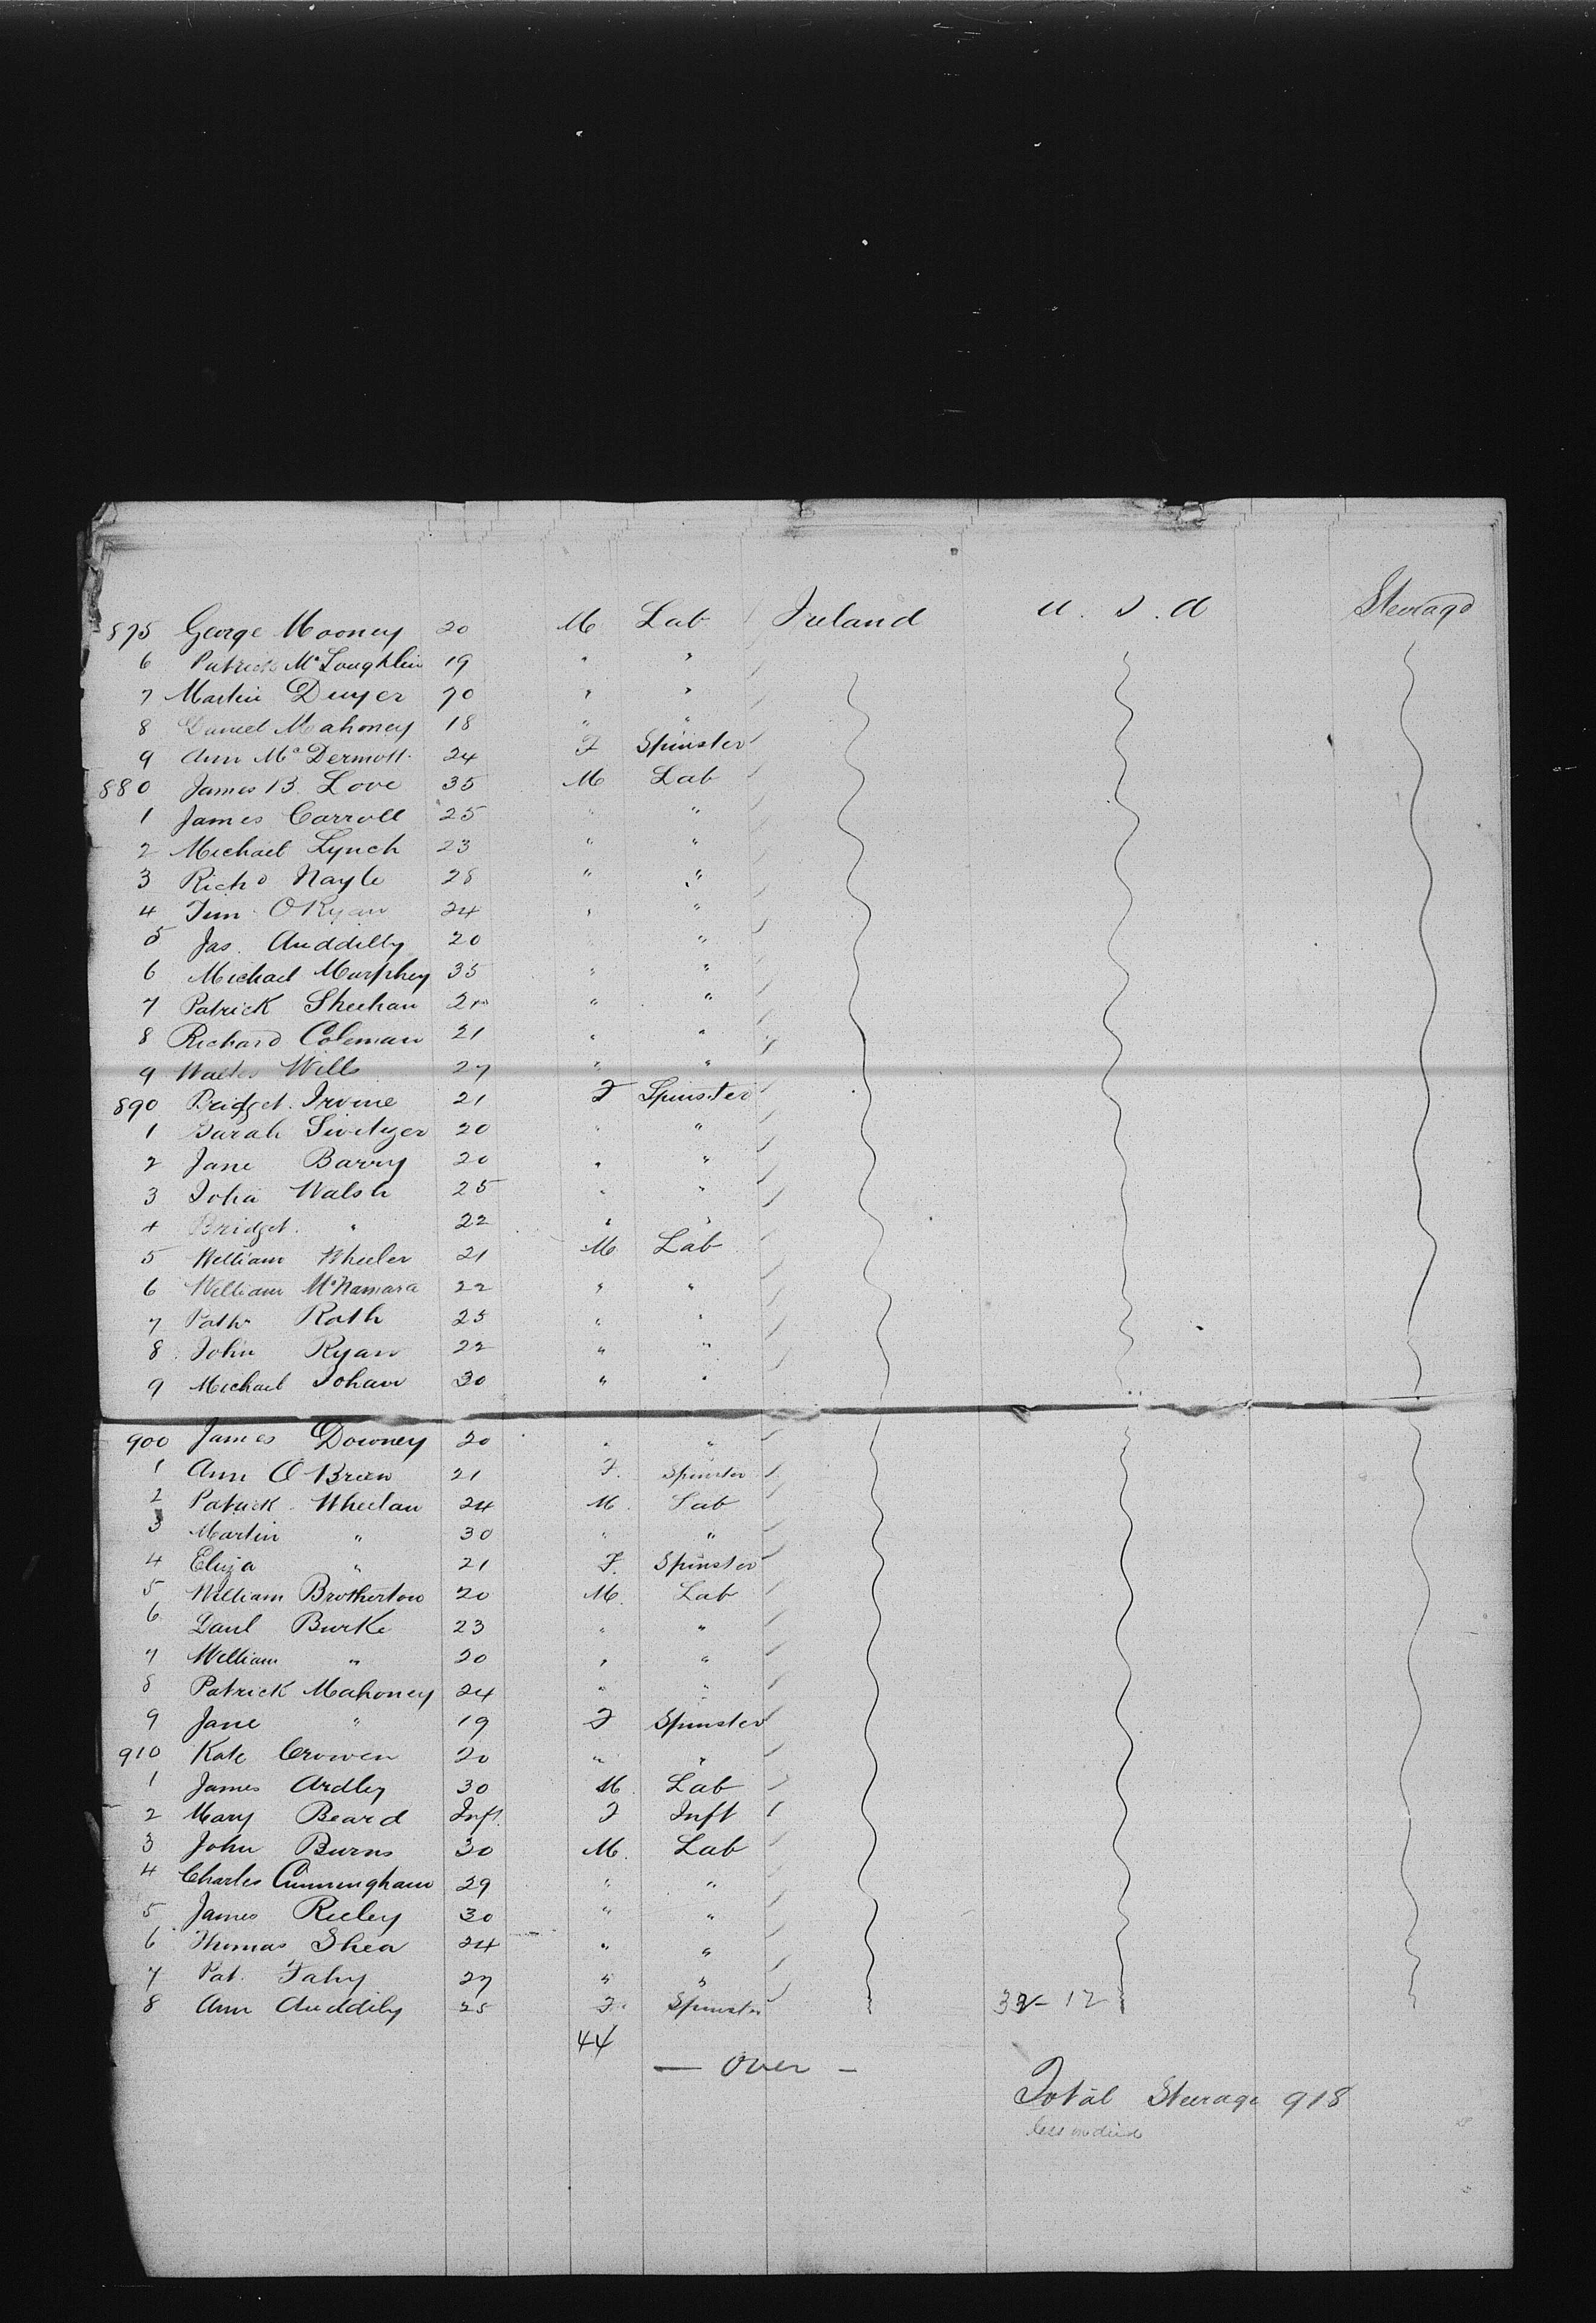 875 George Mooney 20 M Lab Ireland U.S.A Steerage
6 Patrick McLoughlin 19 " "
7 Martin Dwyer 70 " "
8 Daniel Mahoney 18 " "
9 Ann McDermott 24 F Spinster
880 James B. Love 35 M Lab
1 James Carroll 25 " "
2 Michael Lynch 23 " "
3 Richd Nagle 28 " "
4 Tim O Ryan 24 " "
5 Jas. Auddilly 20 " "
6 Michael Murphey 35 " "
7 Patrick Sheehan " "
8 Richard Coleman 21 " "
9 Walter Wills 27 " "
890 Bridget Irvine 21 F Spinster
1 Sarah Switzer 20 " "
2 Jane Barry 20 " "
3 Walsh 25 " "
4 Bridget " 22 " "
5 William Wheeler 21 M Lab
6 William McNamara 22 " "
7 Patk Roth 25 " "
8 John Ryan 22 " "
9 Michael Johan 30 " "
900 James Downey 20 " "
1 Ann O Brien 21 F. Spinster
2 Patrick Wheelan 24 M. Lab
3 Martin " 30 " "
4 Eliza " 21 F. Spinster
5 William Brotherton 20 M. Lab
6 Danl Burke 23 " "
7 William " 20 " "
8 Patrick Mahoney 24 " "
9 Jane " 19 F Spinster
910 Kate Crowen 20 " "
1 James Ardley 30 M Lab
2 Mary Beard Inft. F Inft
3 John Burns 30 M. Lab
4 Charles Cunningham 29 " "
5 James Rieley 30 " "
6 Thomas Shea 24 " "
7 Pat. Fahy 27 " "
8 Ann Auddily 25 F. Spinster 32-12
44
— over —
Total Steerage 918
less one died